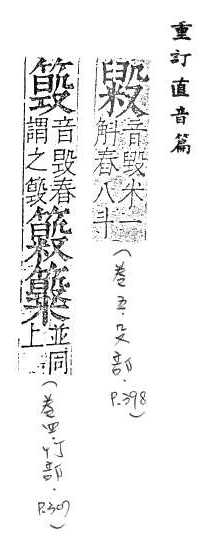 重訂直音篇
音毀米一
斛舂八斗
(卷五·殳部·P.398)
音毀舂
謂之
並同
上
(卷四·竹部·P.307)